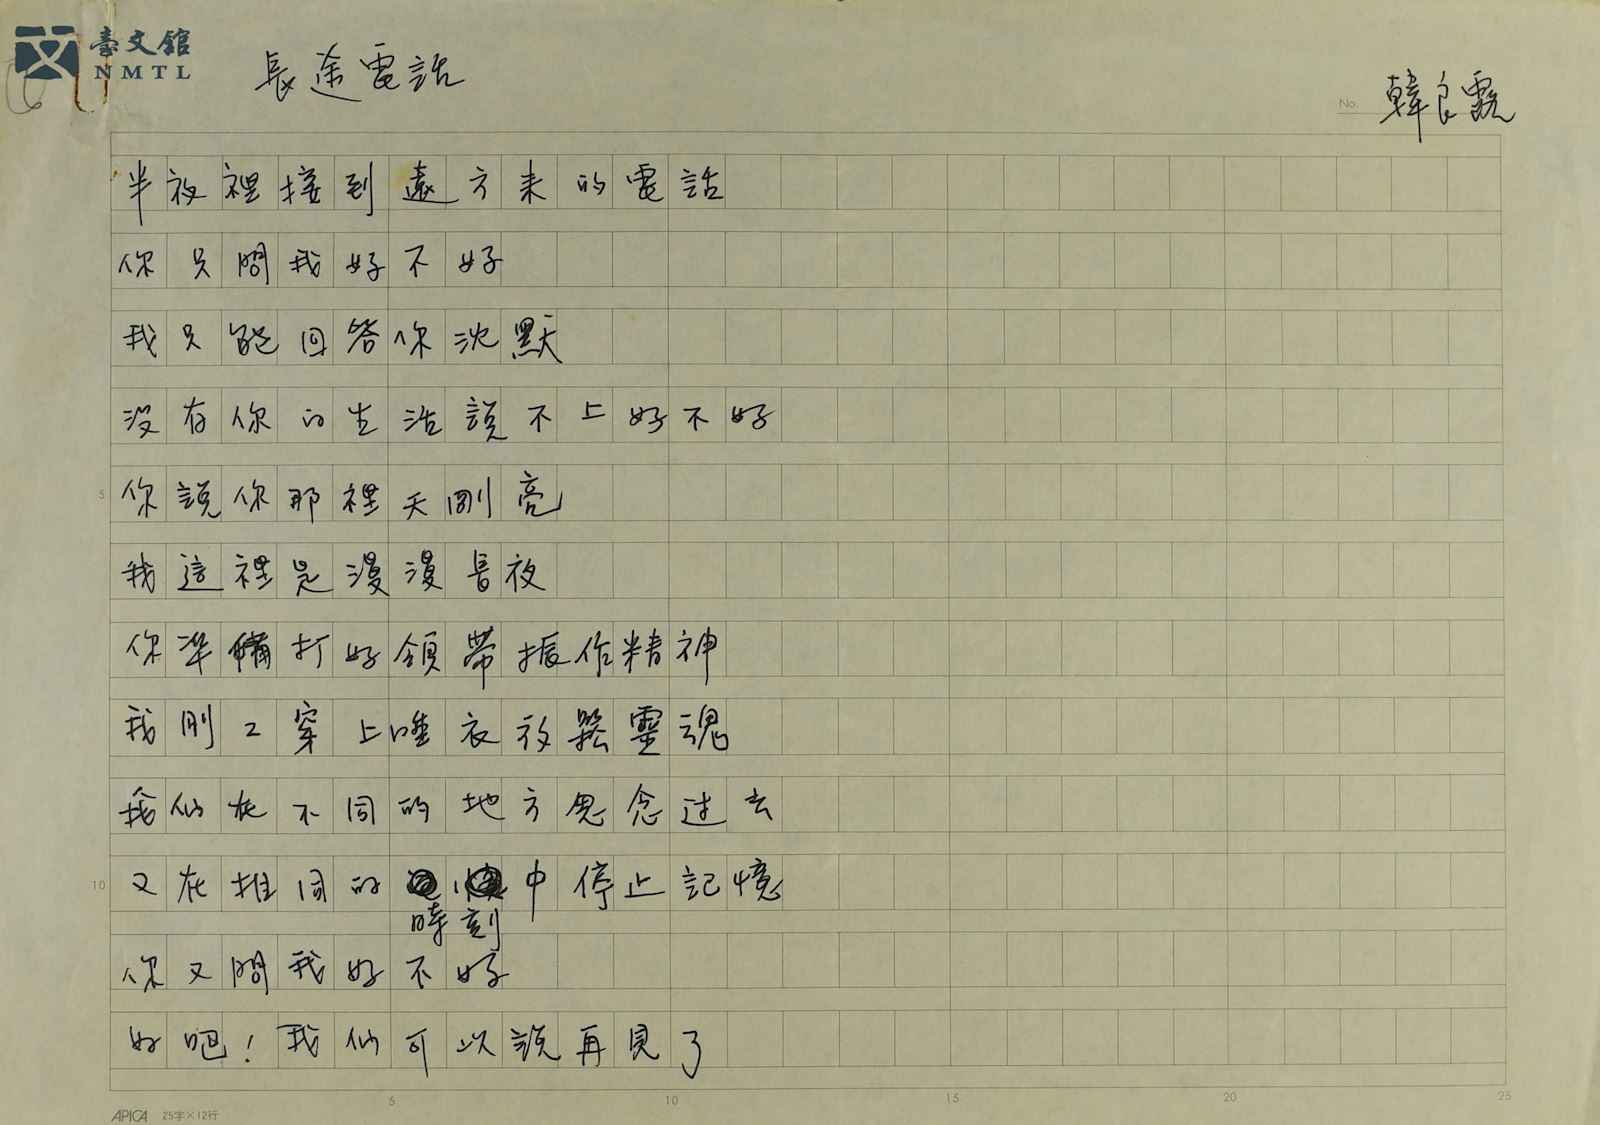 臺文館
NMTL
長途電話
No. 韓良露
半夜裡接到遠方來的電話
你只問我好不好
我只能回答你沈默
沒有你的生活說不上好不好
5 你說你那裡天剛亮
我這裡是漫漫長夜
你準備打好領帶振作精神
我剛々穿上睡衣放鬆靈魂
我们在不同的地方思念过去
10 又在相同的中停止記憶
時刻
你又問我好不好
好吧！我们可以說再見了
5 10 15 20 25
APICA 25字×12行